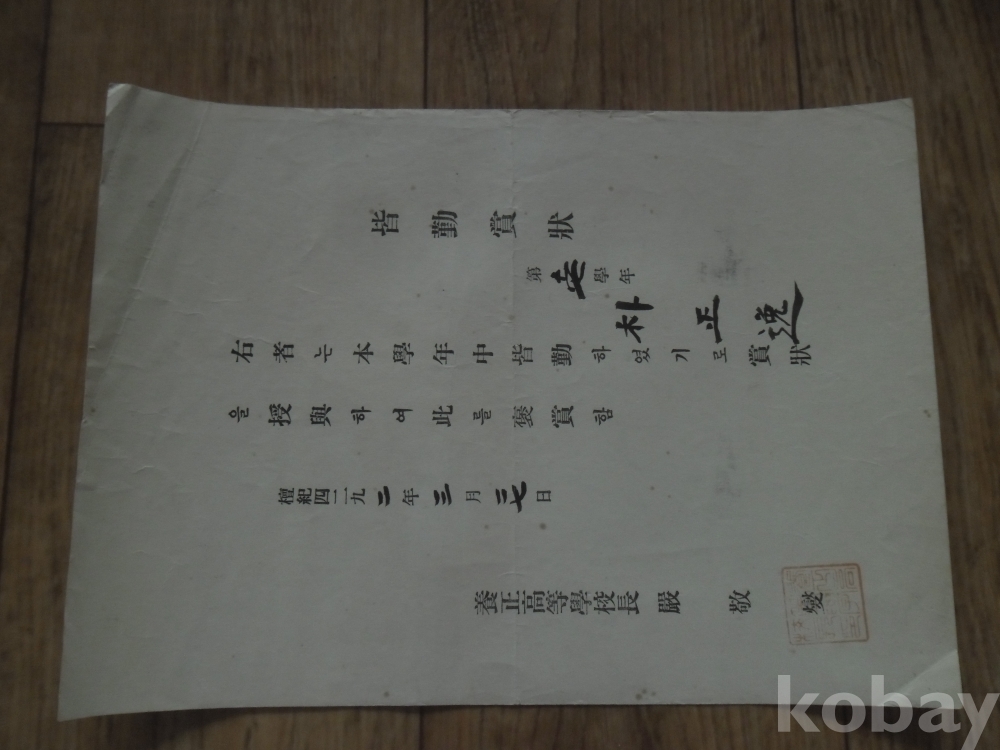 皆勤賞狀
第壱學年
朴正逸
右者는本學年中皆勤하였기로賞狀
을授與하여此를褒賞함
檀紀四二九二年三月二七日
養正高等學校長 嚴敬燮
kobay